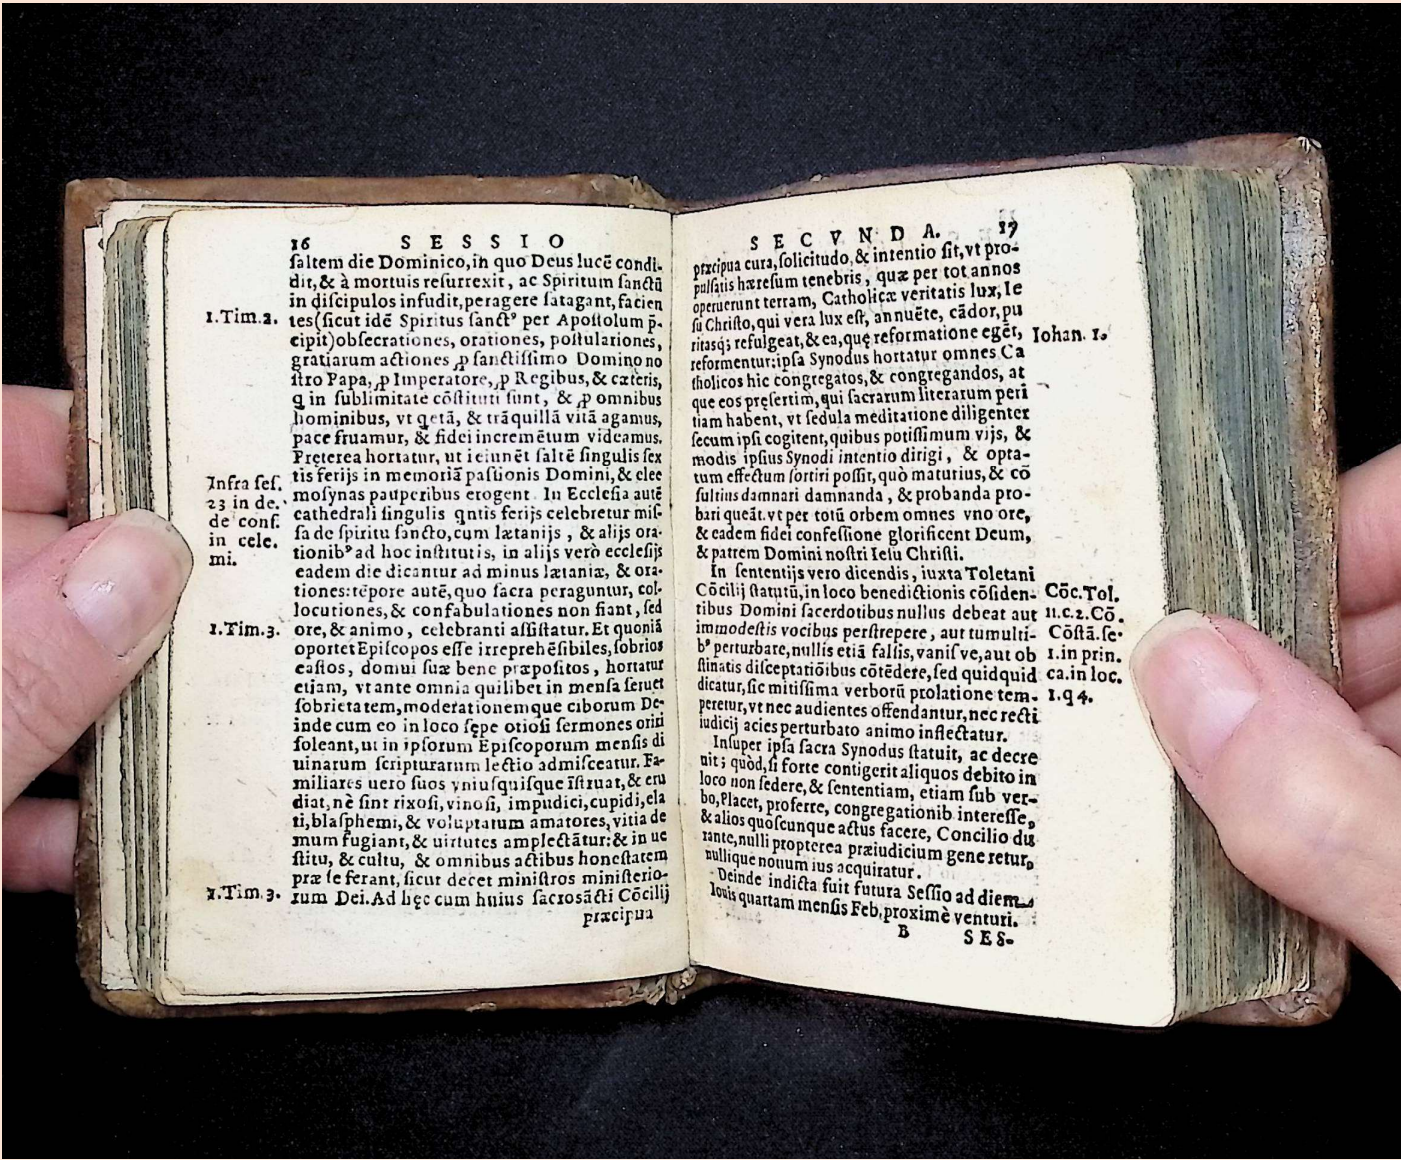 16 SESSIO
ſaltem die Dominico, in quo Deus lucē condi-
dit, & à mortuis reſurrexit, ac Spiritum ſanctū
in diſcipulos infudit, peragere ſatagant, facien
1.Tim.2. tes (ſicut idē Spiritus ſanctꝰ per Apoſtolum p̄-
cipit) obſecrationes, orationes, poſtulariones,
gratiarum actiones ꝓ ſanctiſſimo Domino no
ſtro Papa, ꝓ Imperatore, ꝓ Regibus, & cæteris,
q in ſublimitate cōſtituti ſunt, & ꝓ omnibus
hominibus, vt qetā, & trāquillā vitā agamus,
pace fruamur, & fidei incremētum videamus.
Pręterea hortatur, ut ieiunēt ſaltē ſingulis ſex
tis ferijs in memoriā paſsionis Domini, & elee
Infra ſeſ. moſynas pauperibus erogent. In Eccleſia autē
23 in de. cathedrali ſingulis qntis ferijs celebretur miſ-
de conſ. ſa de ſpiritu ſancto, cum lætanijs, & alijs ora-
in cele. tionibꝰ ad hoc inſtitutis, in alijs verò eccleſijs
mi. eadem die dicantur ad minus lætaniæ, & ora-
tiones: tēpore autē, quo ſacra peraguntur, col-
locutiones, & confabulationes non fiant, ſed
1.Tim.3. ore, & animo, celebranti aſſiſtatur. Et quoniā
oportet Epiſcopos eſſe irreprehēſibiles, ſobrios
caſtos, domui ſuæ bene præpoſitos, hortatur
etiam, vt ante omnia quilibet in menſa ſeruet
ſobrietatem, moderationemque ciborum De-
inde cum eo in loco ſępe otioſi ſermones oriri
ſoleant, ut in ipſorum Epiſcoporum menſis di
uinarum ſcripturarum lectio admiſceatur. Fa-
miliares uero ſuos vniuſquiſque īſtruat, & eru
diat, nè ſint rixoſi, vinoſi, impudici, cupidi, ela
ti, blaſphemi, & voluptatum amatores, vitia de
mum fugiant, & uirtutes amplectātur: & in ue
ſtitu, & cultu, & omnibus actibus honeſtatem
præ ſe ferant, ſicut decet miniſtros miniſterio-
1.Tim.3. rum Dei. Ad hęc cum huius ſacroſācti Cōcilij
præcipua
SECVNDA. 17
præcipua cura, ſolicitudo, & intentio ſit, vt pro-
pulſatis hæreſum tenebris, quæ per tot annos
operuerunt terram, Catholicæ veritatis lux, Ie
ſu Chriſto, qui vera lux eſt, annuēte, cādor, pu
ritasq; refulgeat, & ea, quę reformatione egēt, Iohan. 1.
reformentur: ipſa Synodus hortatur omnes Ca
tholicos hic congregatos, & congregandos, at
que eos pręſertim, qui ſacrarum literarum peri
tiam habent, vt ſedula meditatione diligenter
ſecum ipſi cogitent, quibus potiſſimum vijs, &
modis ipſius Synodi intentio dirigi, & opta-
tum effectum ſortiri poſſit, quò maturius, & cō
ſultius damnari damnanda, & probanda pro-
bari queāt. vt per totū orbem omnes vno ore,
& eadem fidei confeſſione glorificent Deum,
& patrem Domini noſtri Ieſu Chriſti.
In ſententijs vero dicendis, iuxta Toletani
Cōcilij ſtatutū, in loco benedictionis cōſiden- Cōc.Tol.
tibus Domini ſacerdotibus nullus debeat aut 11.c.2.Cō.
immodeſtis vocibus perſtrepere, aut tumulti- Cōſtā.ſe.
bꝰ perturbare, nullis etiā falſis, vaniſve, aut ob 1.in prin.
ſtinatis diſceptatiōibus cōtēdere, ſed quidquid ca.in loc.
dicatur, ſic mitiſſima verborū prolatione tem- 1.q 4.
peretur, vt nec audientes offendantur, nec recti
iudicij acies perturbato animo inflectatur.
Inſuper ipſa ſacra Synodus ſtatuit, ac decre
uit; quòd, ſi forte contigerit aliquos debito in
loco non ſedere, & ſententiam, etiam ſub ver-
bo, Placet, proferre, congregationib. intereſſe,
& alios quoſcunque actus facere, Concilio du
rante, nulli propterea præiudicium gene retur,
nullique nouum ius acquiratur.
Deinde indicta fuit futura Seſſio ad diem
Iouis quartam menſis Feb. proximè venturi.
B SES-